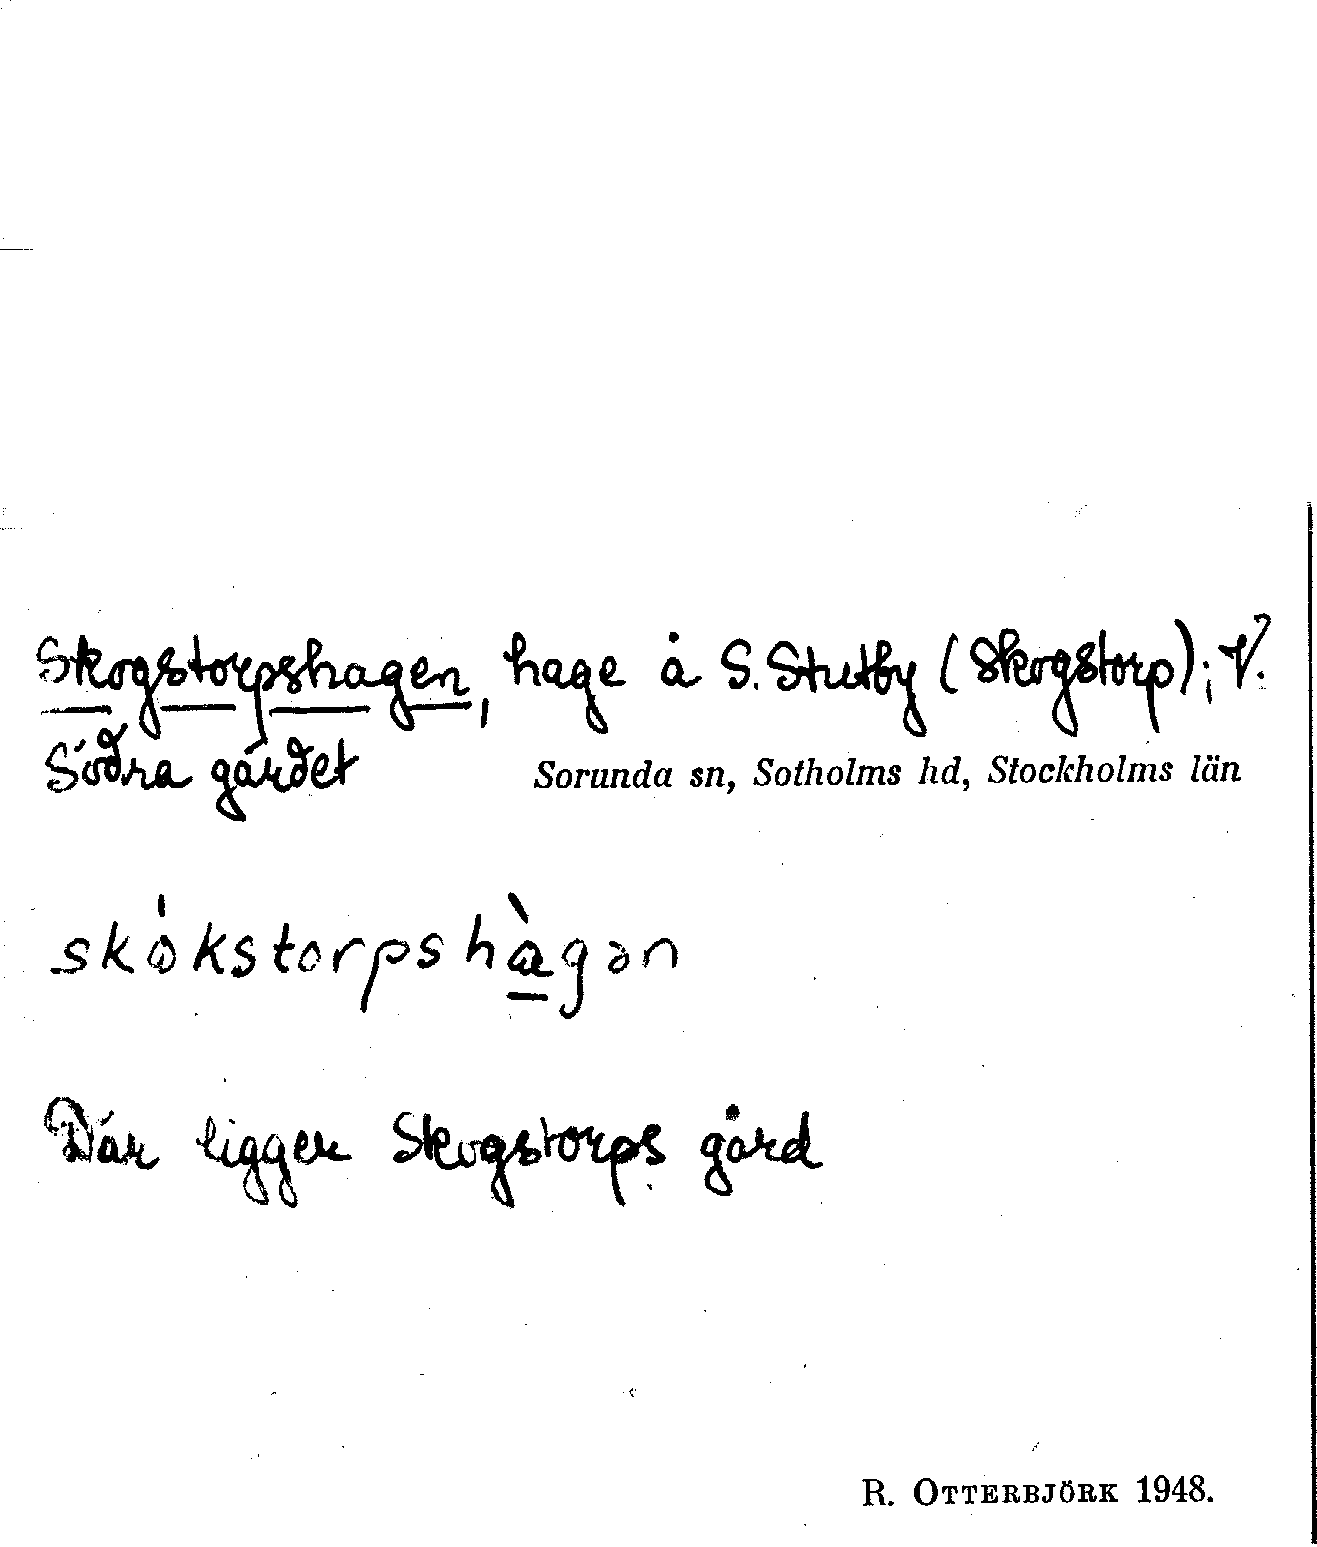 Skogstorpshagen, hage å S. Stutby (Skogstorp); V.
Södra gärdet
Sorunda sn, Sotholms hd, Stockholms län
skókstorpshàgən
Där ligger Skogstorps gård
R. OTTERBJÖRK 1948.